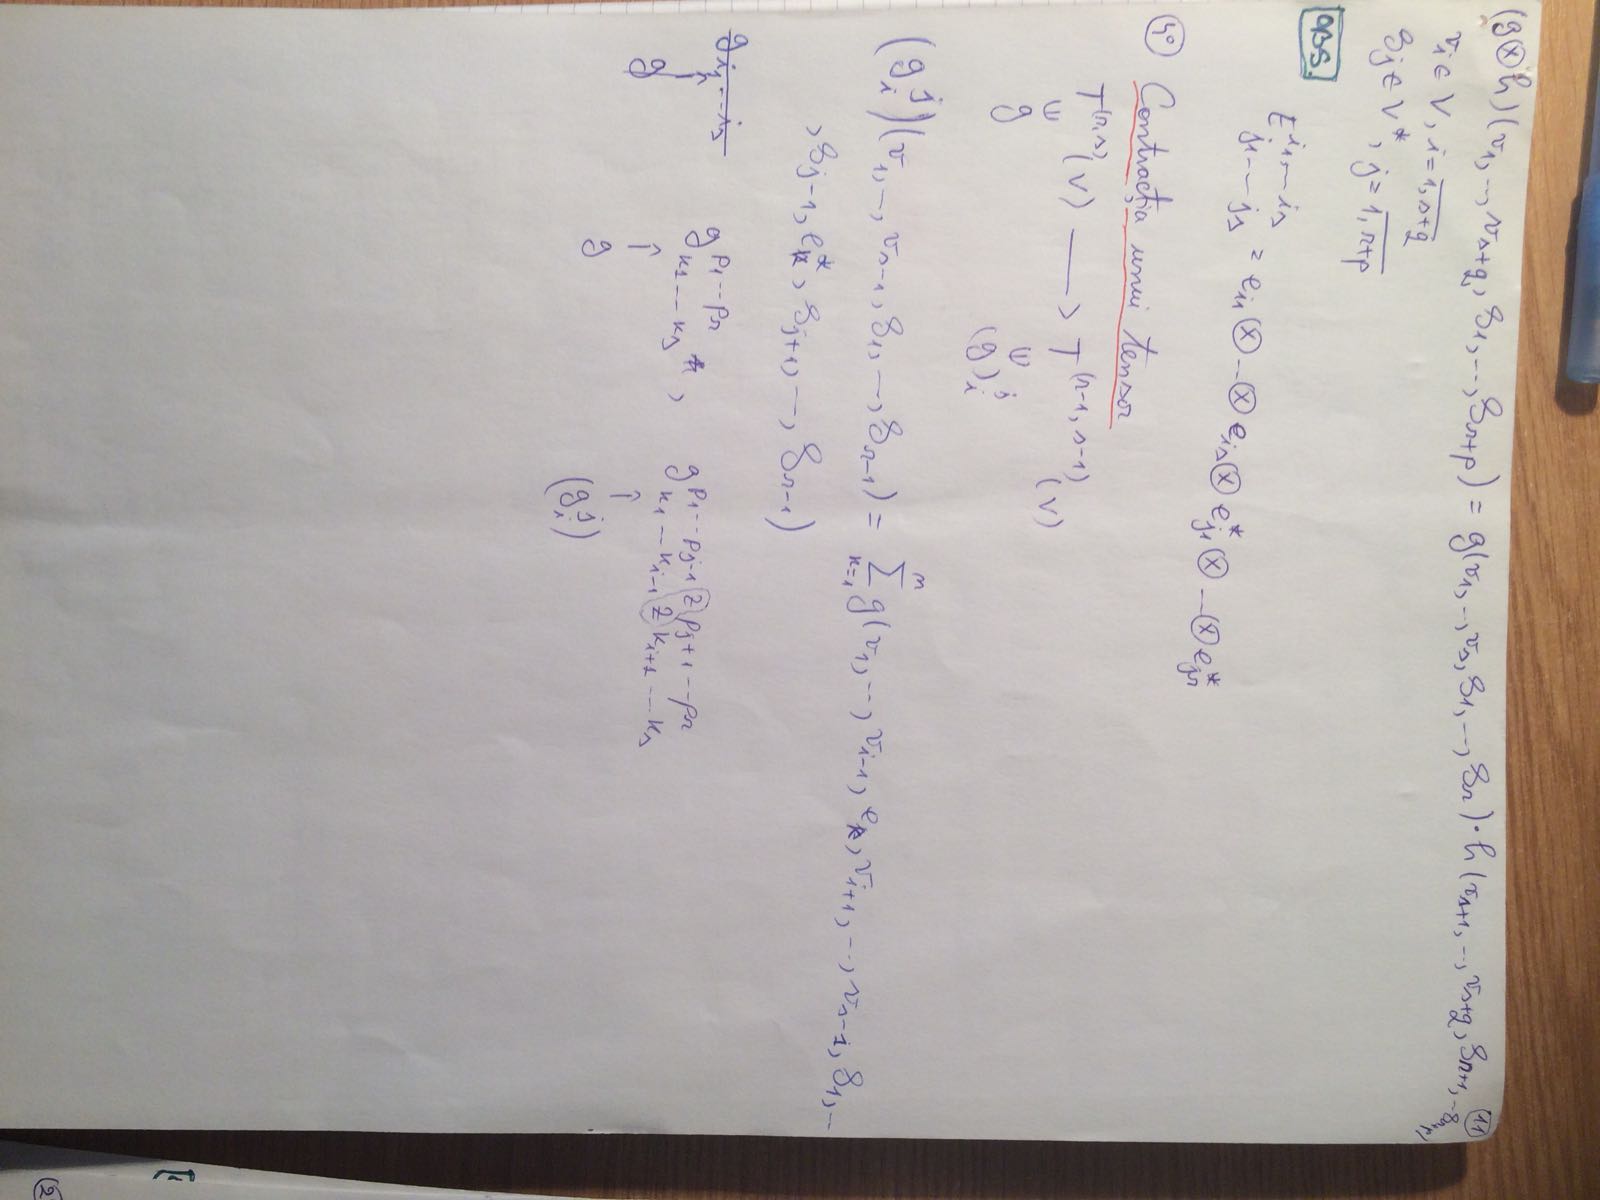 (g⊗h)(v1, .., vs+q, g1, .., gr+p) = g(v1, .., vs, g1, .., gr) · h(vs+1, .., vs+q, gr+1, .. gr+p)
⑪
vi ∈ V, i = 1,s+q
gj ∈ V*, j = 1,r+p
OBS.
E^{i1...is}_{j1...jr} = ei1 ⊗ ... ⊗ eis ⊗ e*j1 ⊗ ... ⊗ e*jr
4° Contracția unui tensor
T^(r,s)(V) ⟶ T^(r-1,s-1)(V)
∈ ∈
g (g)^j_i
(g^j_i)(v1, .., vs-1, g1, .., gr-1) = Σ_{k=1}^{n} g(v1, .., vi-1, ek, vi+1, .., vs-1, g1, ..
, gj-1, e*k, gj+1, .., gr-1)
g^{p1..pr}_{k1...ks}, g^{p1..pj-1 z pj+1..pr}_{k1...ki-1 z ki+1...ks}
↑ ↑
g (g^j_i)
②